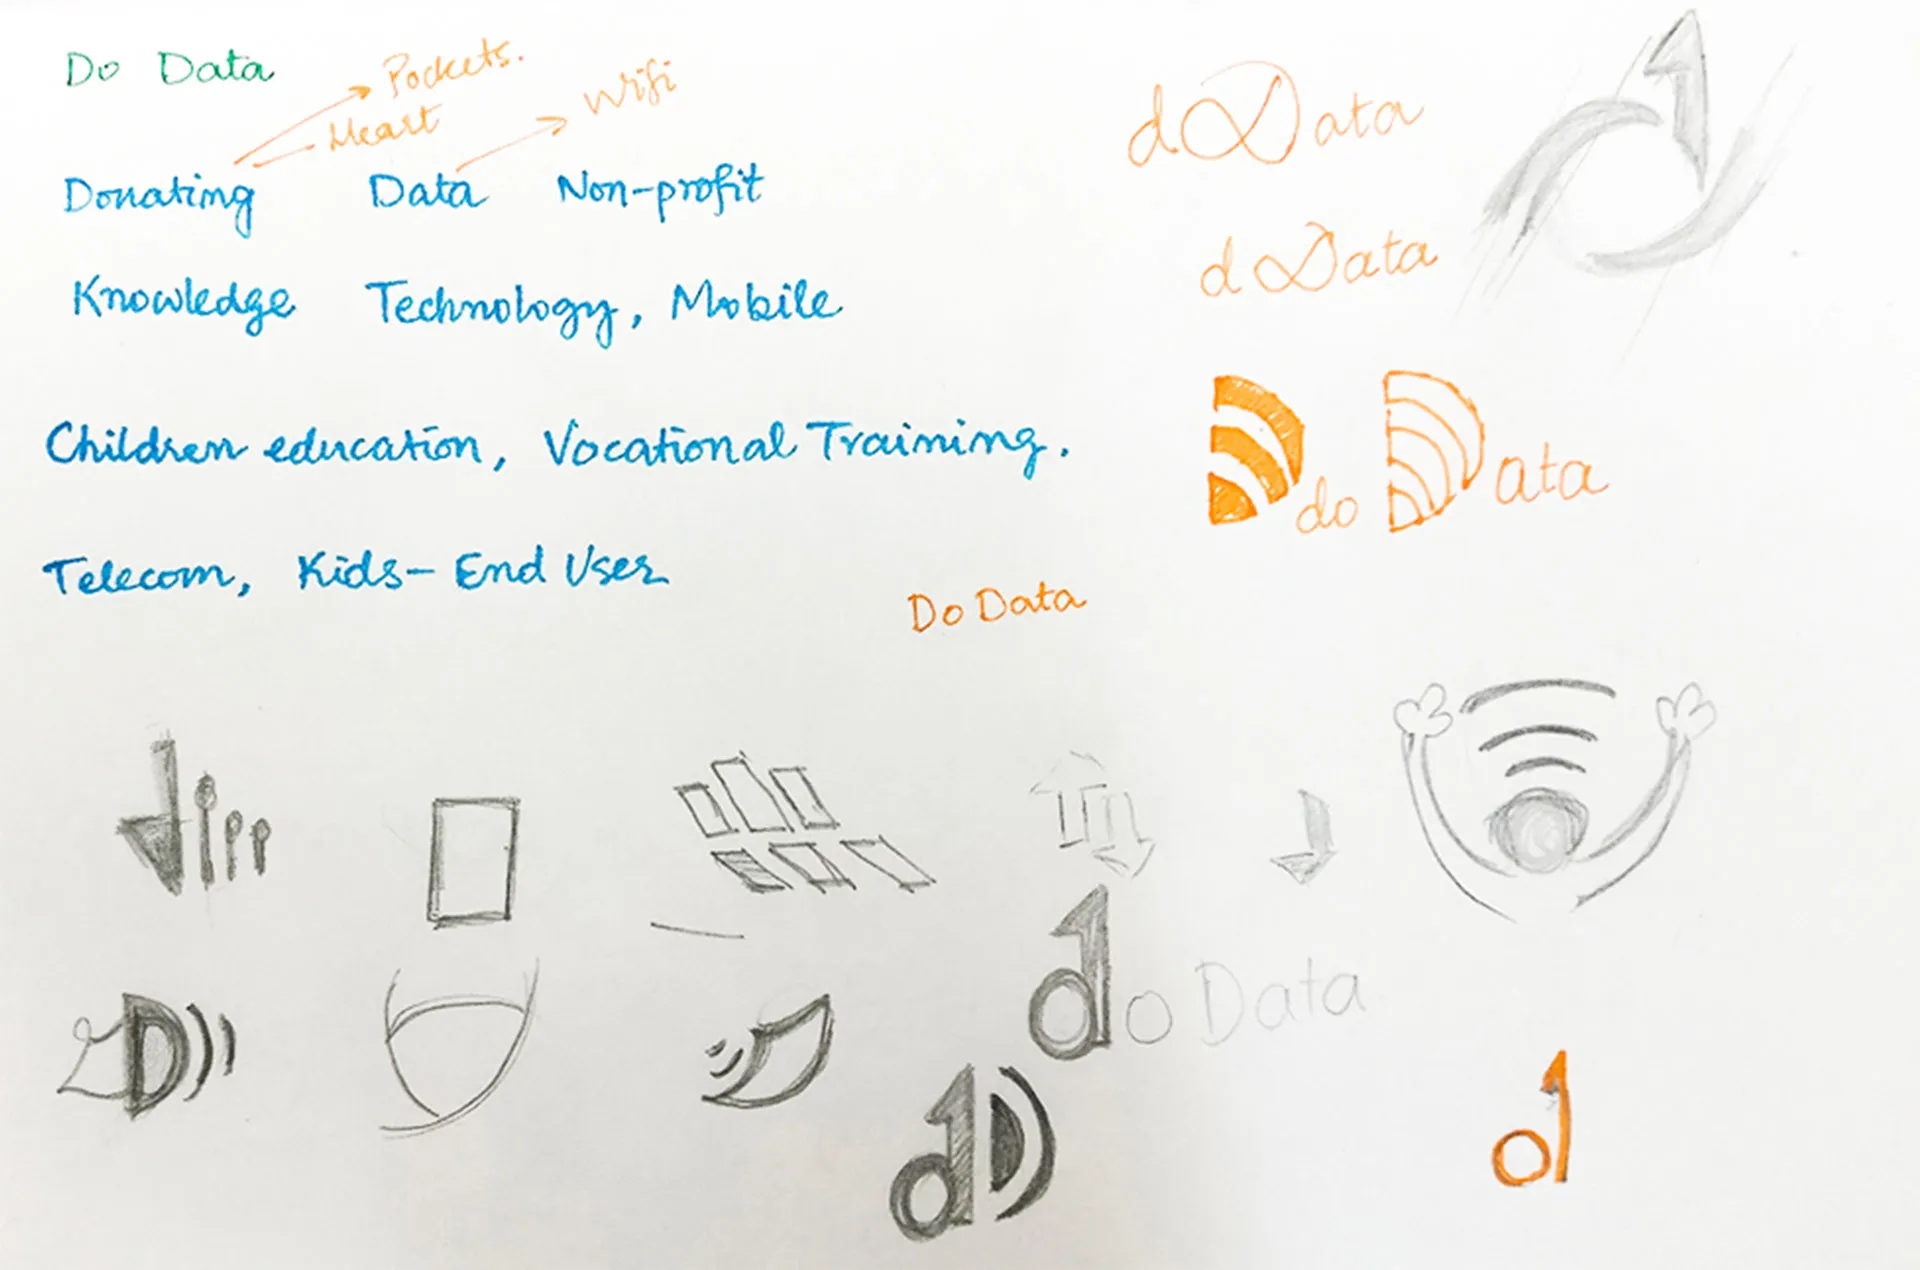 Do Data
Pockets.
Heart
Wifi
Donating Data Non-profit
Knowledge Technology, Mobile
Children education, Vocational Training.
Telecom, Kids- End User
dData
dData
do Data
Do Data
do Data
dD
D
d